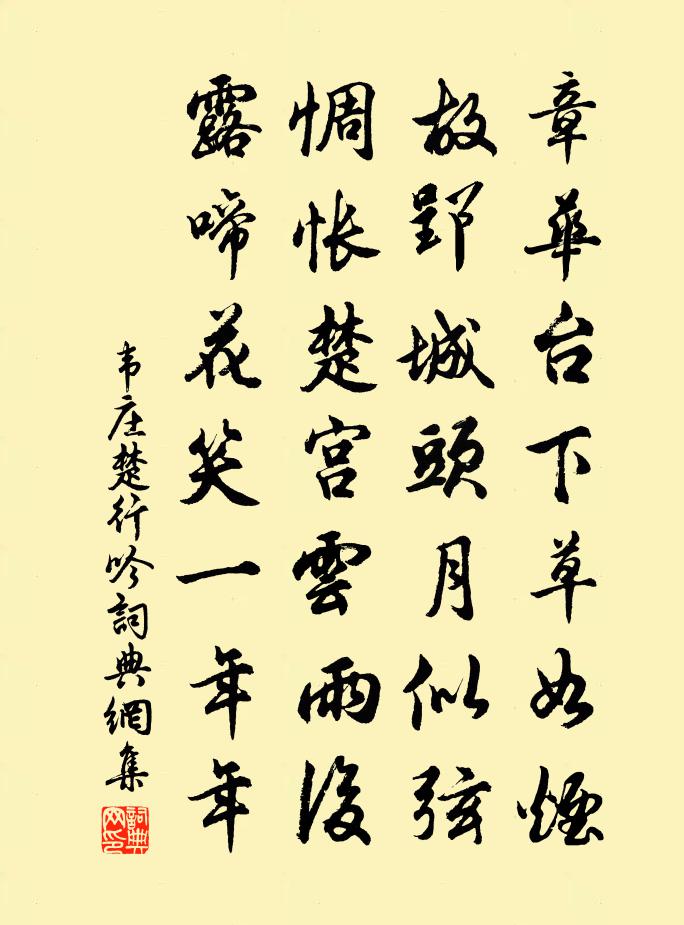 章華台下草如煙
故郢城頭月似弦
惆悵楚宮雲雨後
露啼花笑一年年
韦庄楚行吟詞典網集
詞典网印